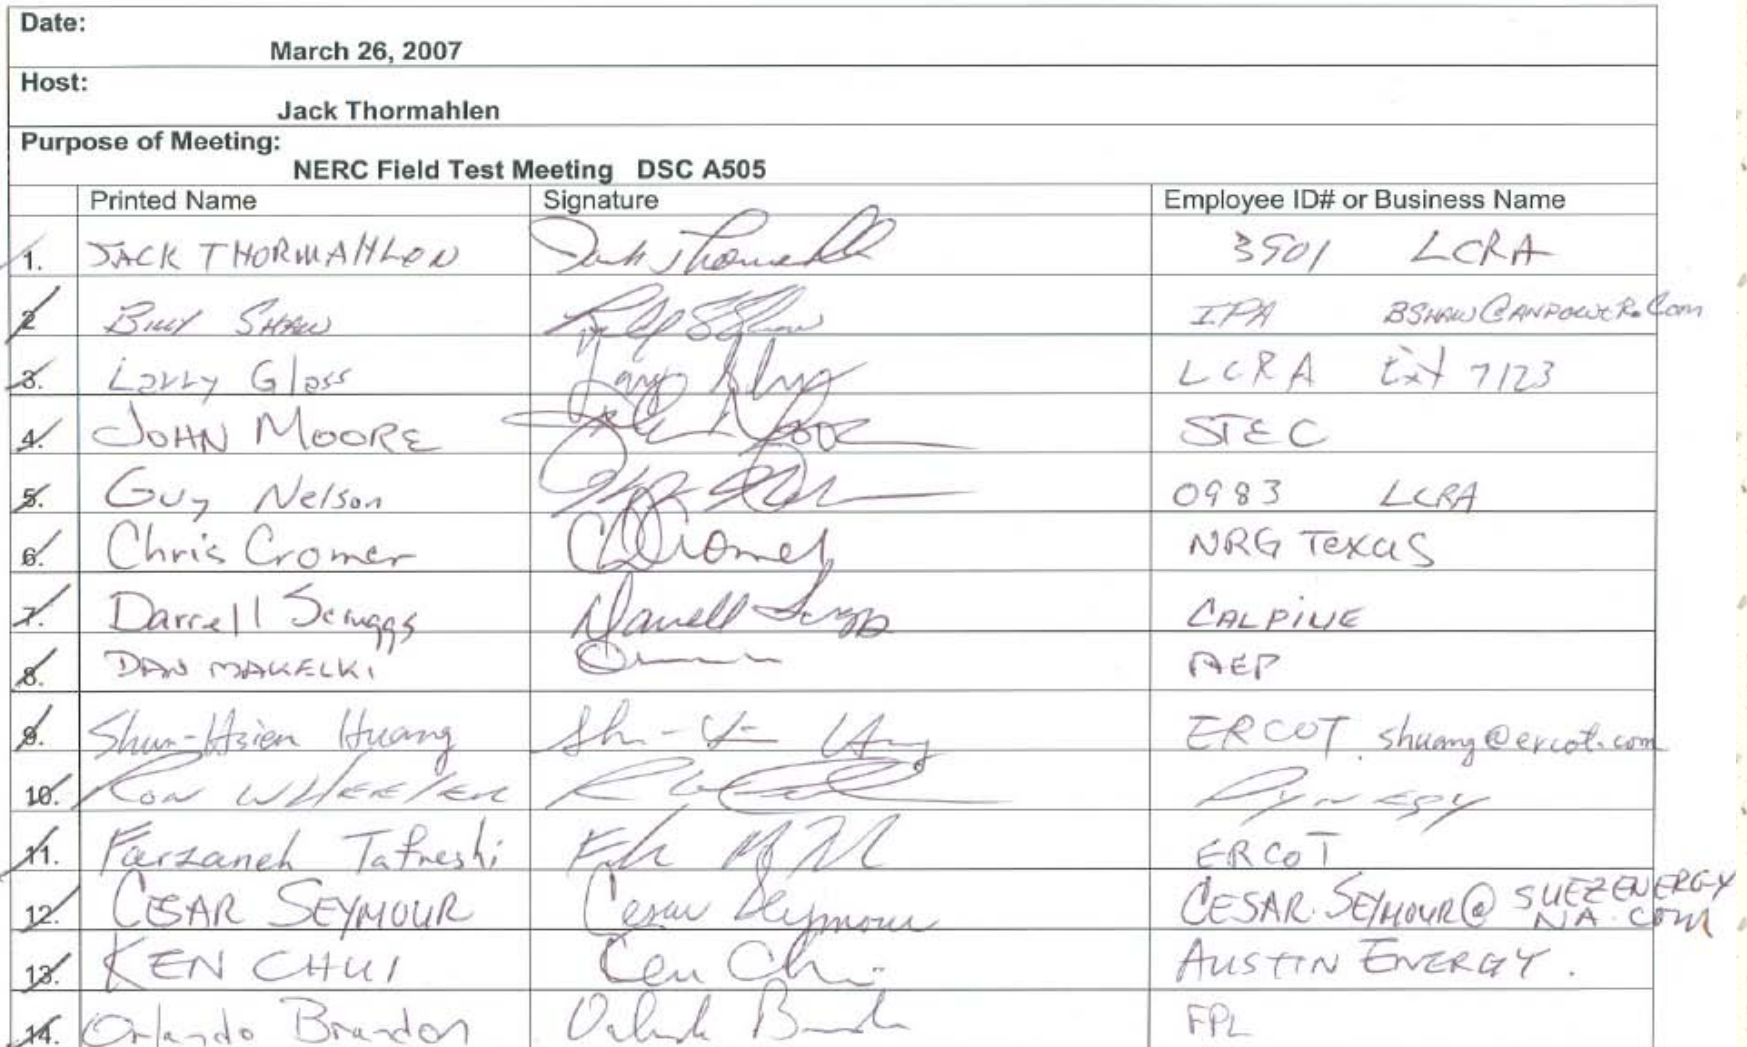 Date:
March 26, 2007
Host:
Jack Thormahlen
Purpose of Meeting:
NERC Field Test Meeting DSC A505
Printed Name Signature Employee ID# or Business Name
1. JACK THORMAHLEN Jack Thormahlen 3901 LCRA
2 BILLY SHAW IPA BSHAW@ANPOWER.Com
3. Larry Gloss LCRA Ext 7123
4. JOHN MOORE John Moore STEC
5. Guy Nelson 0983 LCRA
6. Chris Cromer CDCromer NRG Texas
7. Darrell Scruggs Darrell Scruggs CALPINE
8. DAN MAKELKI AEP
9. Shun-Hsien Huang ERCOT shuang@ercot.com
10. RON WHEELER Dynegy
11. Farzaneh Tafreshi ERCOT
12. CESAR SEYMOUR Cesar Seymour CESAR.SEYMOUR@SUEZENERGY
NA.COM
13. KEN CHUI Ken Chui AUSTIN ENERGY.
14. Orlando Brandon FPL